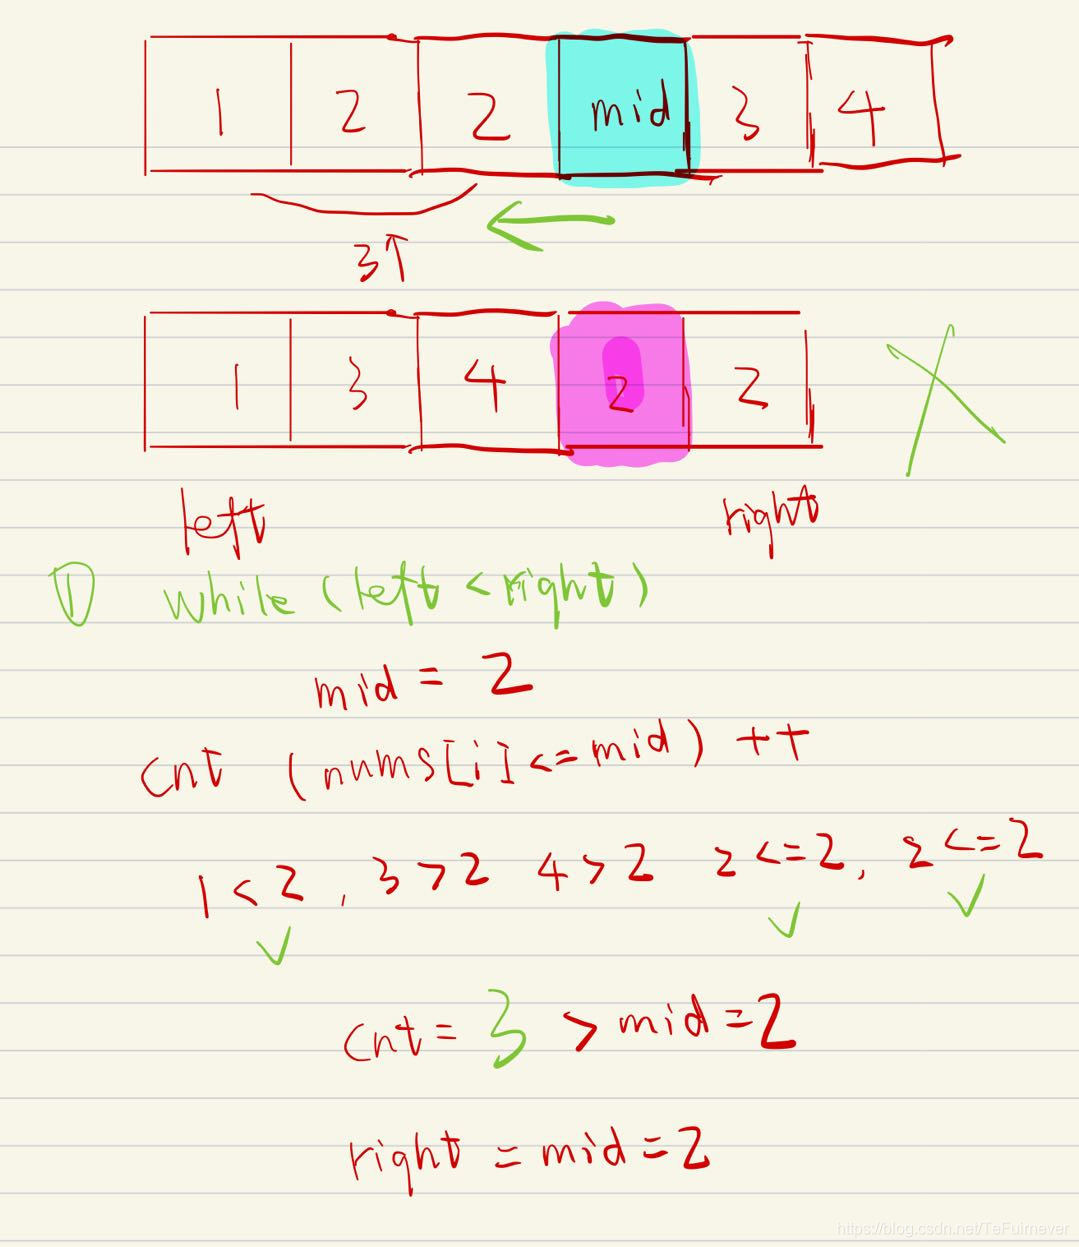 1 2 2 mid 3 4
3↑
1 3 4 2 2
left right
① while (left < right)
mid = 2
cnt (nums[i] <= mid) ++
1 < 2 , 3 > 2 4 > 2 2 <= 2 , 2 <= 2
cnt = 3 > mid = 2
right = mid = 2
https://blog.csdn.net/TeFuirnever